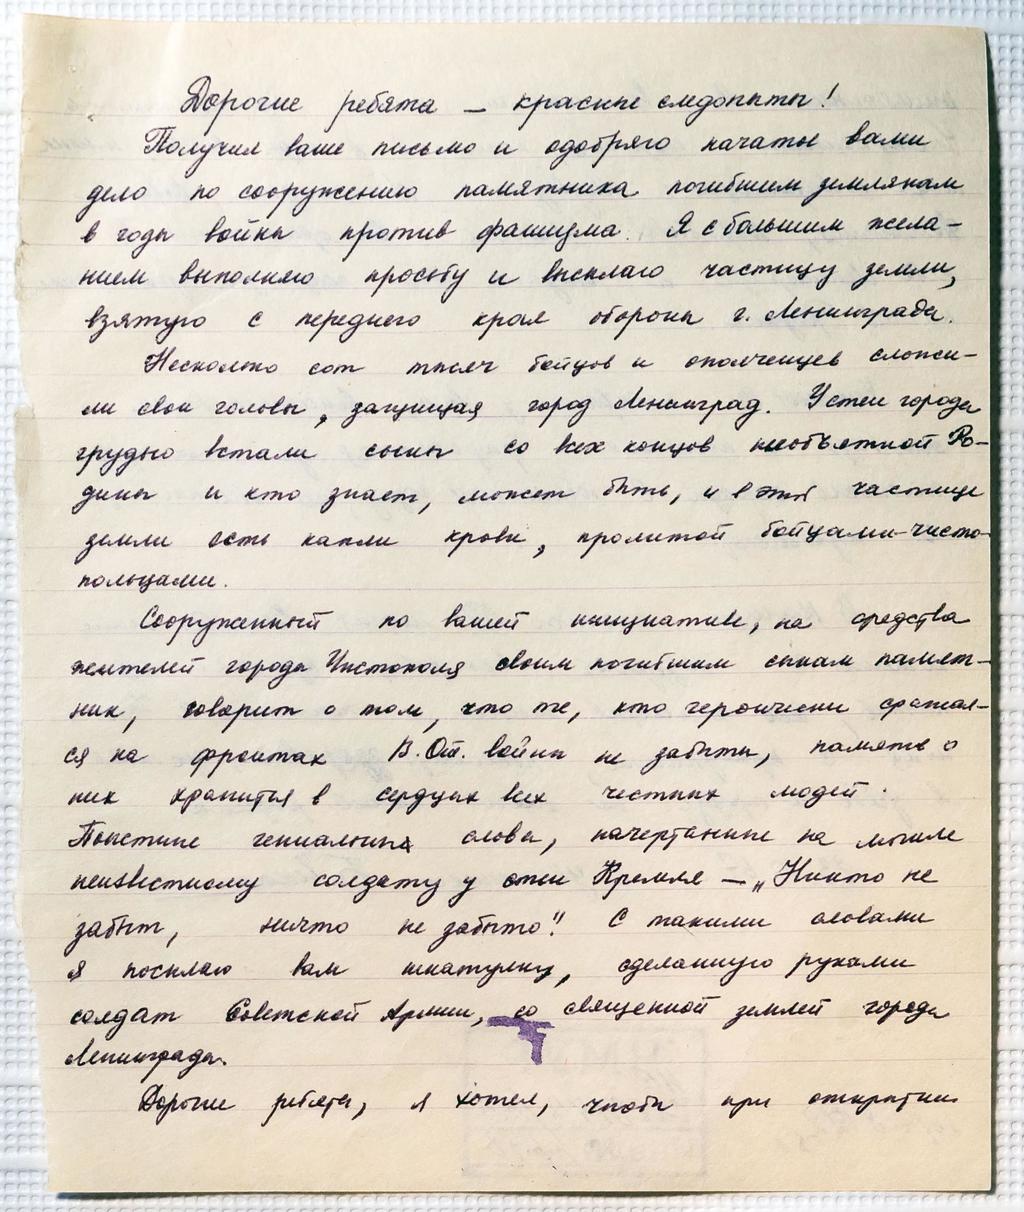 Дорогие ребята — красные следопыты!
Получил ваше письмо и одобряю начатое вами
дело по сооружению памятника погибшим землякам
в годы войны против фашизма. Я с большим жела-
нием выполняю просьбу и высылаю частицу земли,
взятую с переднего края обороны г. Ленинграда.
Несколько сот тысяч бойцов и ополченцев сложи-
ли свои головы, защищая город Ленинград. У стен города
грудью встали сыны со всех концов необъятной Ро-
дины и кто знает, может быть, и в этой частице
земли есть капли крови, пролитой бойцами-чисто-
польцами.
Сооруженный по вашей инициативе, на средства
жителей города Чистополя своим погибшим сынам памят-
ник, говорит о том, что те, кто героически сражал-
ся на фронтах В.От. войны не забыты, память о
них хранится в сердцах всех честных людей.
Поистине гениальные слова, начертанные на могиле
неизвестному солдату у стен Кремля — „Никто не
забыт, ничто не забыто". С такими словами
я посылаю вам шкатулку, сделанную руками
солдат Советской Армии, со священной землей города
Ленинграда.
Дорогие ребята, я хотел, чтобы при открытии